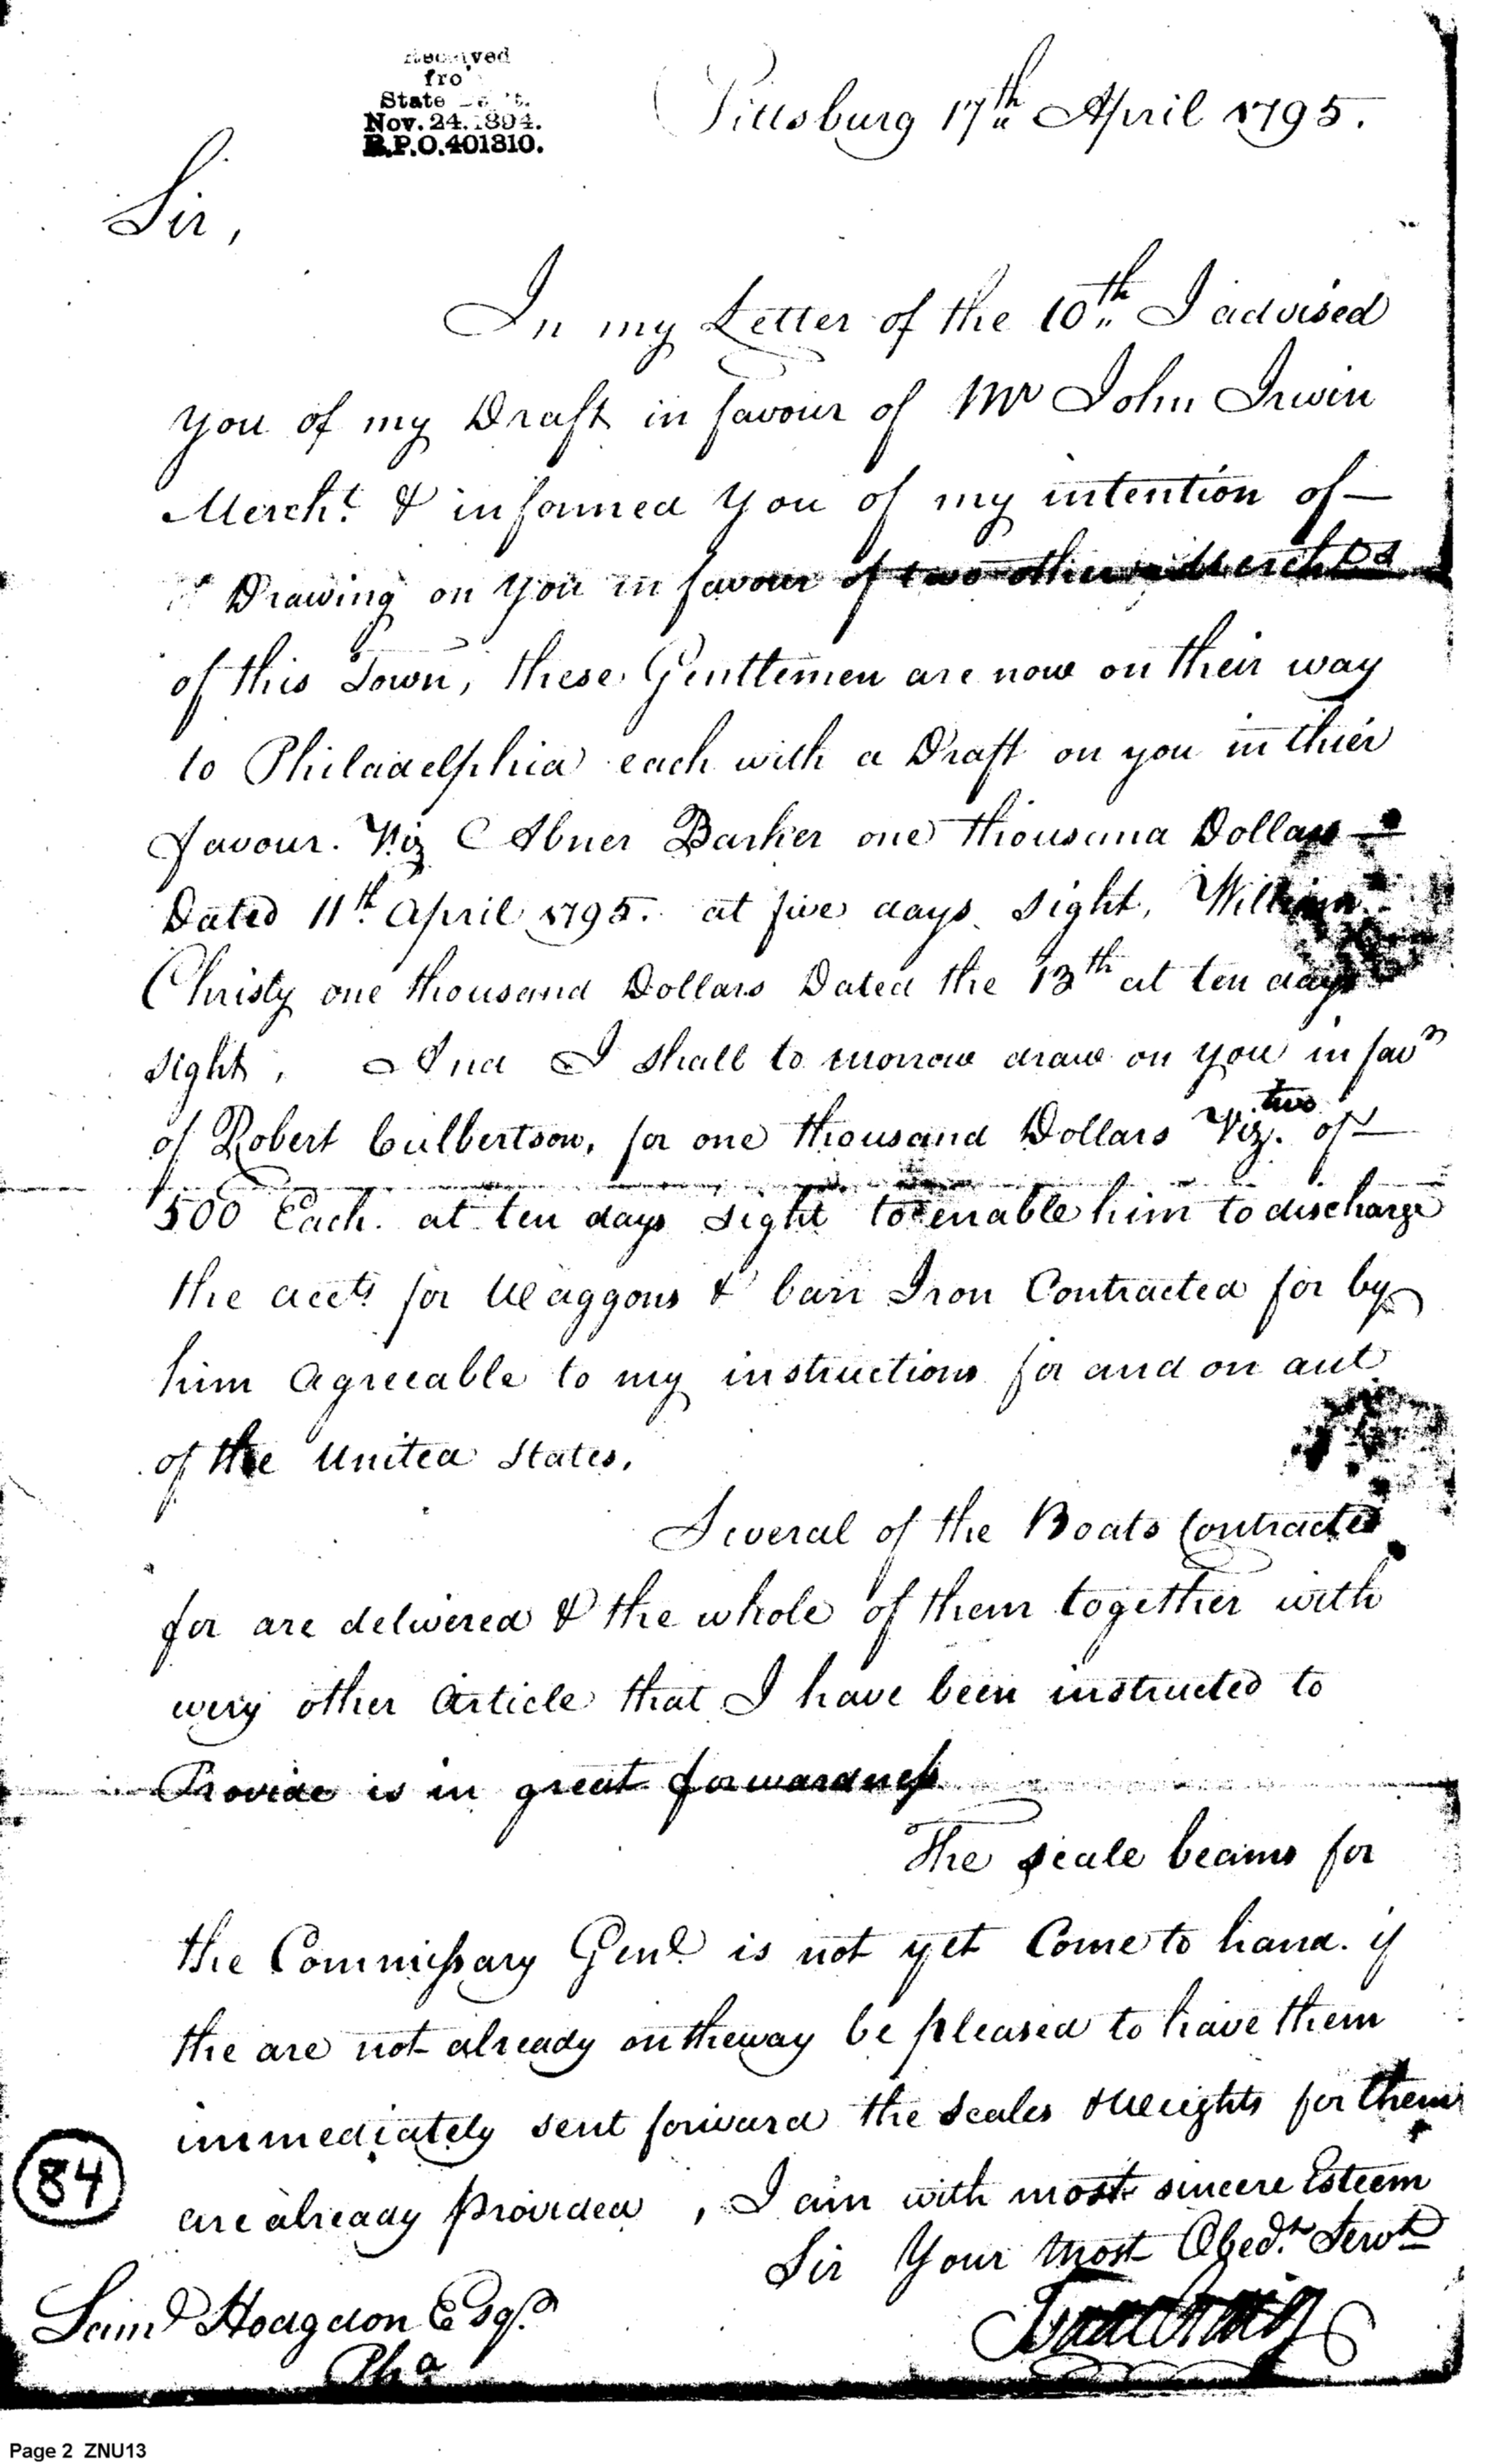 Received
from
State Dept.
Nov. 24. 1894.
R.P.O. 401310.
Pittsburg 17th April 1795.
Sir,
In my Letter of the 10th I advised
you of my Draft in favour of Mr John Irwin
Mercht & informed you of my intention of—
Drawing on you in favour of two other Merchts
of this Town, these Gentlemen are now on their way
to Philadelphia each with a Draft on you in thier
favour. Viz Abner Barker one thousand Dollars—
Dated 11th April 1795. at five days sight, William
Christy one thousand Dollars Dated the 13th at ten days
sight, And I shall to morrow draw on you in favr
of Robert Culbertson, for one thousand Dollars Viz. two of—
500 Each. at ten days sight to enable him to discharge
the accts for Waggons & barr Iron Contracted for by
him agreeable to my instructions for and on acct
of the United States.
Several of the Boats Contracted
for are delivered & the whole of them together with
every other Article that I have been instructed to
Provide is in great forwardness
The scale beams for
the Commissary Genl is not yet Come to hand. if
the are not already on the way be pleased to have them
immediately sent forward the Scales & Weights for them
are already provided, I am with most sincere Esteem
Sir Your most Obedt. Servt
Isaac Craig
Saml Hodgdon Esqr.
Pha
84
Page 2 ZNU13